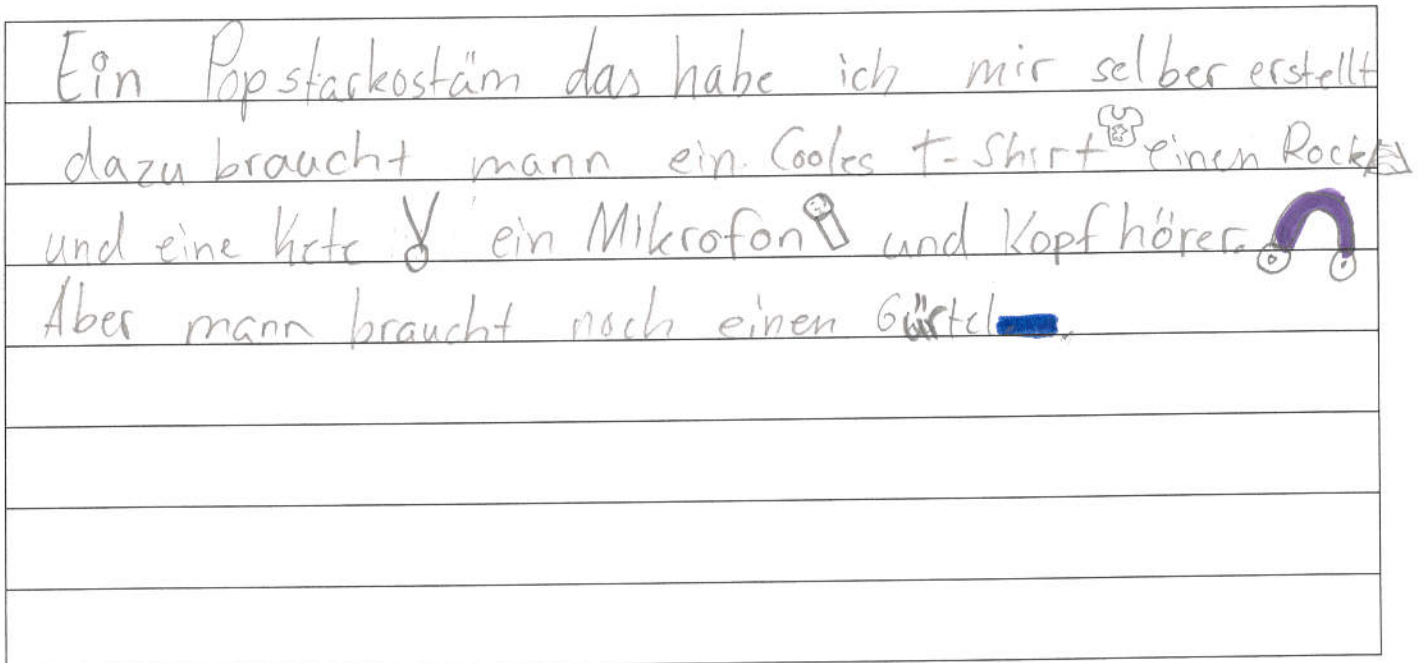 Ein Popstarkostäm das habe ich mir selber erstellt
dazu braucht mann ein. Cooles T-Shirt einen Rock
und eine Kete ein Mikrofon und Kopfhörer.
Aber mann braucht noch einen Gürtel.